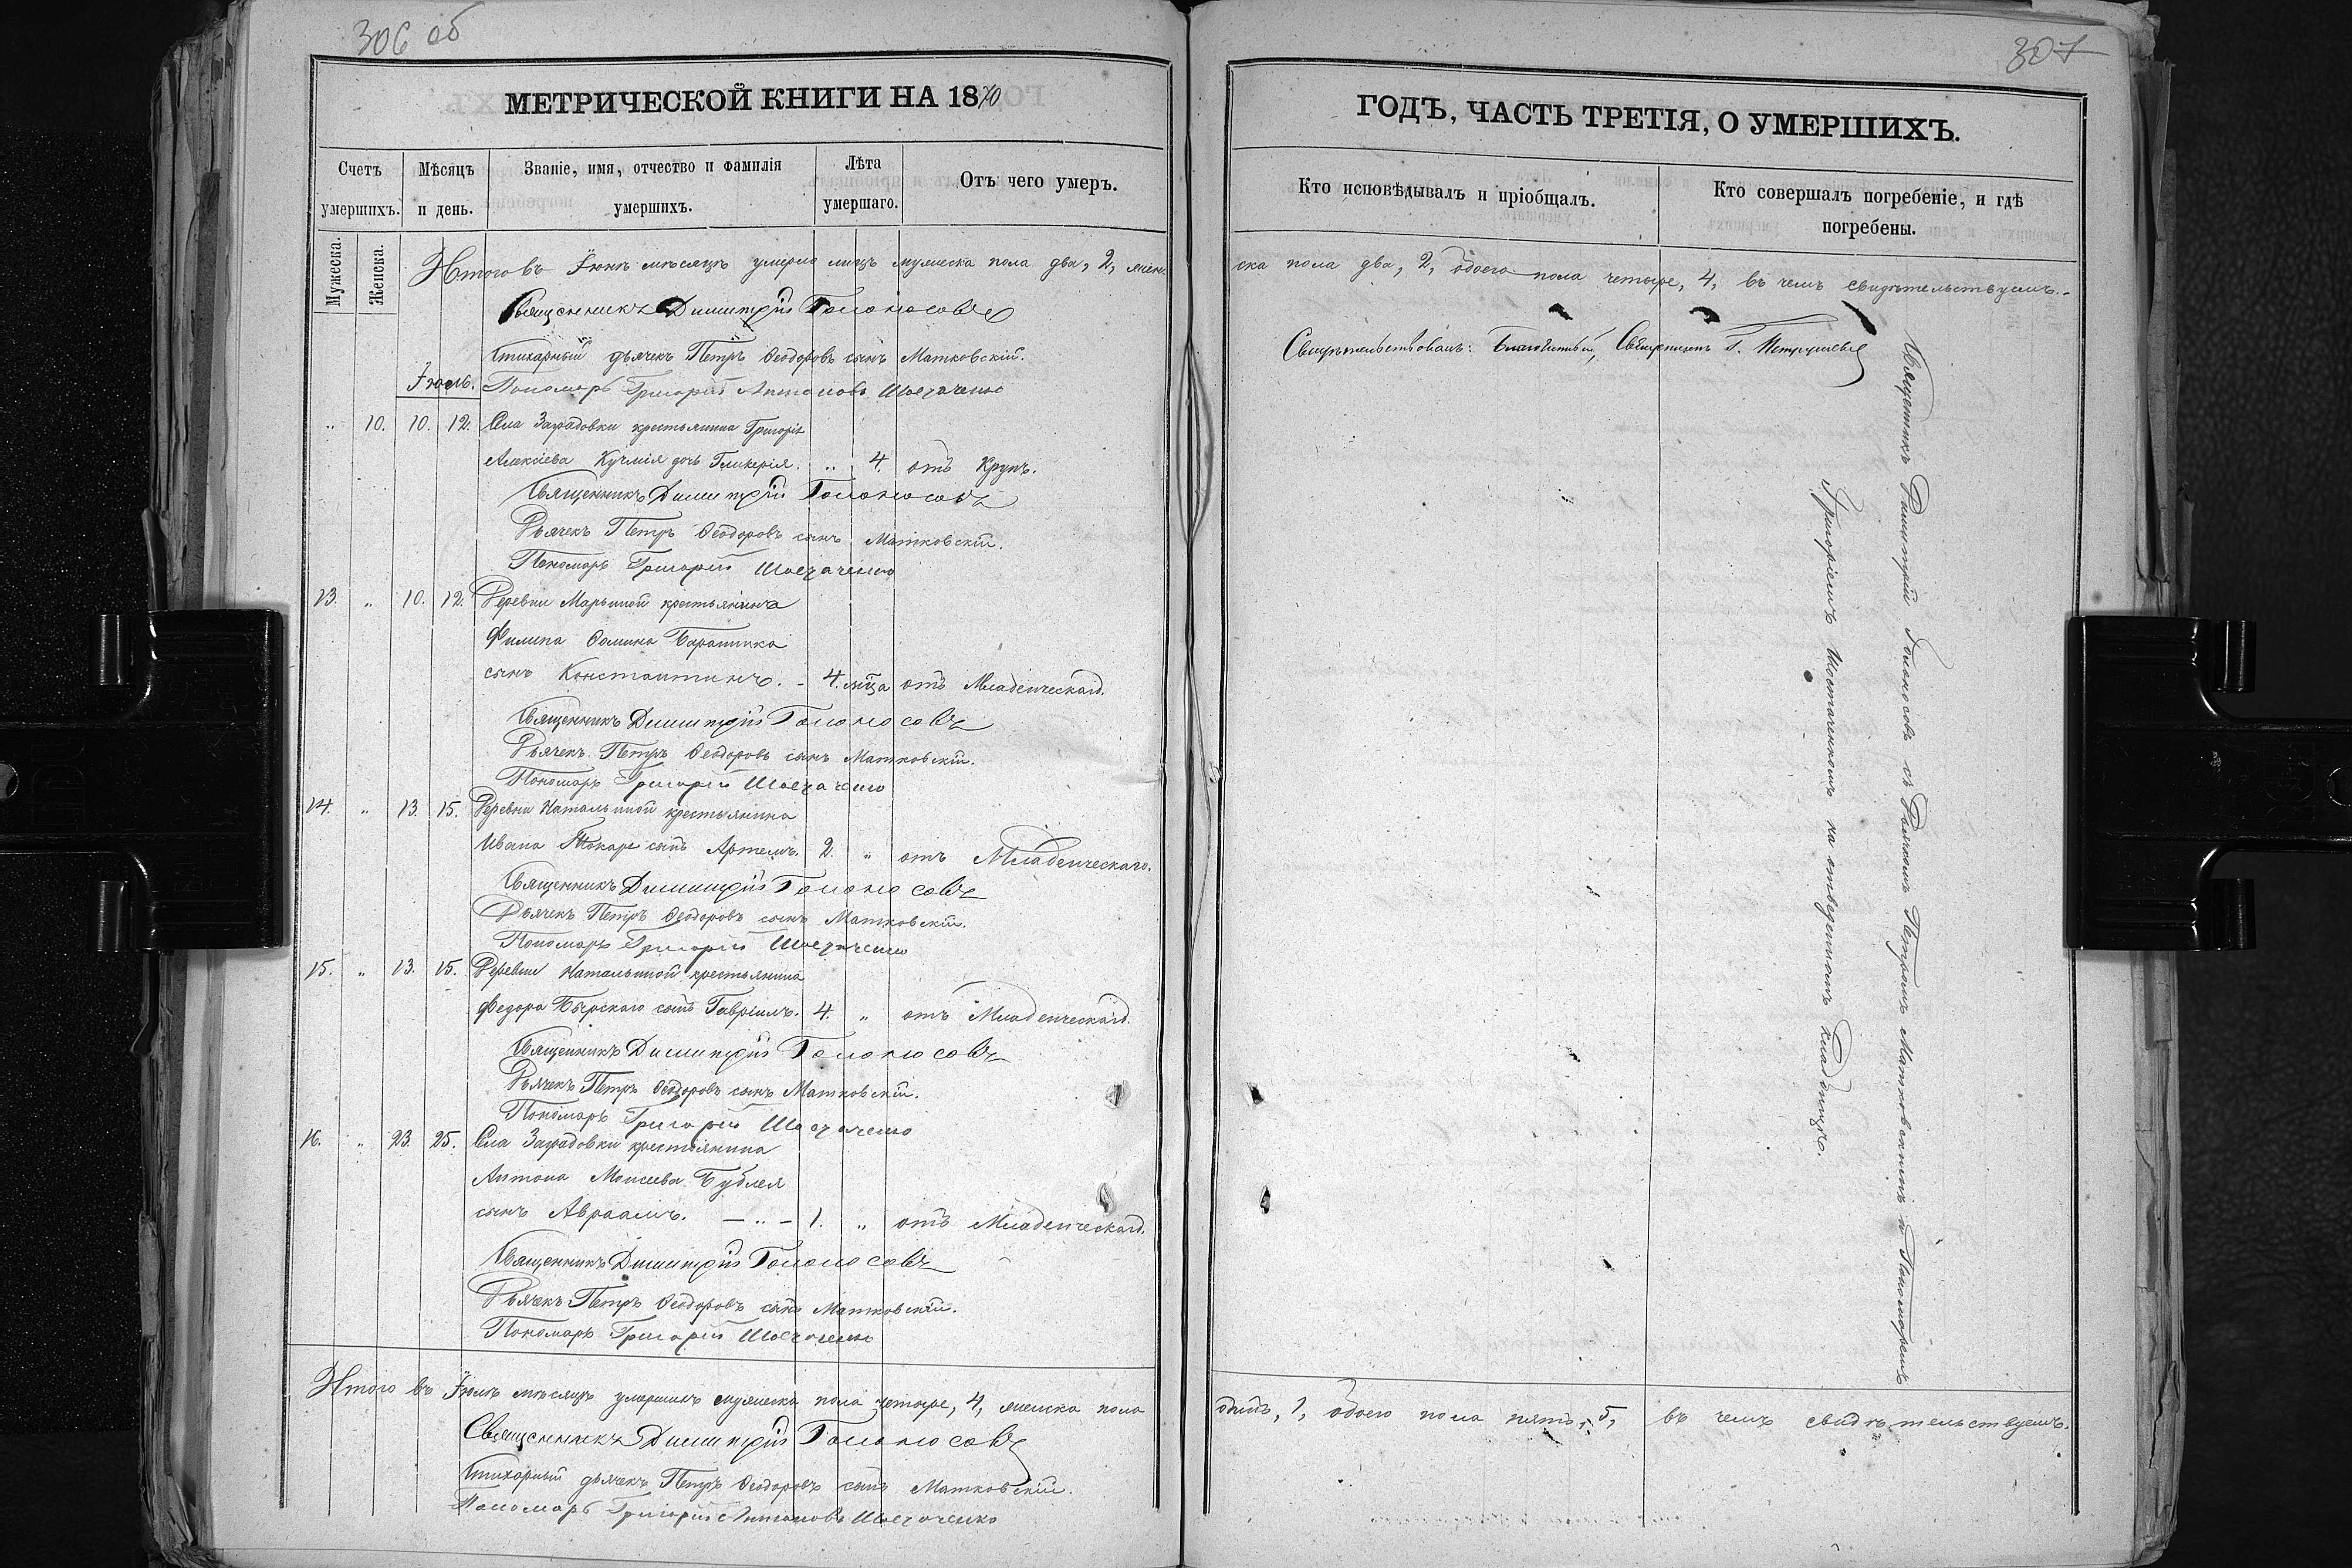 306 об
МЕТРИЧЕСКОЙ КНИГИ НА 1870
Счетъ умершихъ.
Мужеска.
Женска.
Мѣсяцъ и день.
Званіе, имя, отчество и фамилія умершихъ.
Лѣта умершаго.
Отъ чего умеръ.
Итого въ Іюнѣ мѣсяцѣ умерло лицъ мужеска пола два, 2, жен
Священникъ Димитрій Голоносовъ
Стихарный дьячекъ Петръ Ѳеодоровъ сынъ Матковскій.
Іюль. Пономарь Григорій Антоновъ
„ 10. 10. 12. Села Заградовки крестьянина Григорія
Алексіева Кучмія дочь Гликерія. „ 4. отъ Крупъ.
Священникъ Димитрій Голоносовъ
Дьячекъ Петръ Ѳеодоровъ сынъ Матковскій.
Пономарь Григорій Шостаченко
13. „ 10. 12. Деревни Марьиной крестьянина
Филипа Ѳомина
сынъ Константинъ. - 4. мца отъ Младенческаго.
Священникъ Димитрій Голоносовъ
Дьячекъ Петръ Ѳеодоровъ сынъ Матковскій.
Пономарь Григорій Шостаченко
14. „ 13. 15. Деревни Натальиной крестьянина
Ивана Токаря сынъ Артемъ. 2. „ отъ Младенческаго.
Священникъ Димитрій Голоносовъ
Дьячекъ Петръ Ѳеодоровъ сынъ Матковскій.
Пономарь Григорій Шостаченко
15. „ 13. 15. Деревни Натальиной крестьянина
Федора сынъ Гавріилъ. 4. „ отъ Младенческаго.
Священникъ Димитрій Голоносовъ
Дьячекъ Петръ Ѳеодоровъ сынъ Матковскій.
Пономарь Григорій Шостаченко
16. „ 23. 25. Села Заградовки крестьянина
Антона Моисеева Бублея
сынъ Авраамъ. — „ — 1. „ отъ Младенческаго.
Священникъ Димитрій Голоносовъ
Дьячекъ Петръ Ѳеодоровъ сынъ Матковскій.
Пономарь Григорій Шостаченко
Итого въ Іюлѣ мѣсяцѣ умершихъ мужеска пола четыре, 4, женска пола
Священникъ Димитрій Голоносовъ
Стихарный дьячекъ Петръ Ѳеодоровъ сынъ Матковскій.
Пономарь Григорій Антоновъ Шостаченко
307
ГОДЪ, ЧАСТЬ ТРЕТІЯ, О УМЕРШИХЪ.
Кто исповѣдывалъ и пріобщалъ.
Кто совершалъ погребеніе, и гдѣ погребены.
ска пола два, 2, обоего пола четыре, 4, въ чемъ свидѣтельствуемъ.-
Свидѣтельствовалъ: Благочинный, Священникъ Г.
Священникъ Димитрій Голоносовъ съ Дьячкомъ Петромъ Матковскимъ и Пономаремъ
Григоріемъ Шостаченкомъ на отведенномъ кладбищѣ.
одинъ, 1, обоего пола пять, 5, въ чемъ свидѣтельствуемъ.